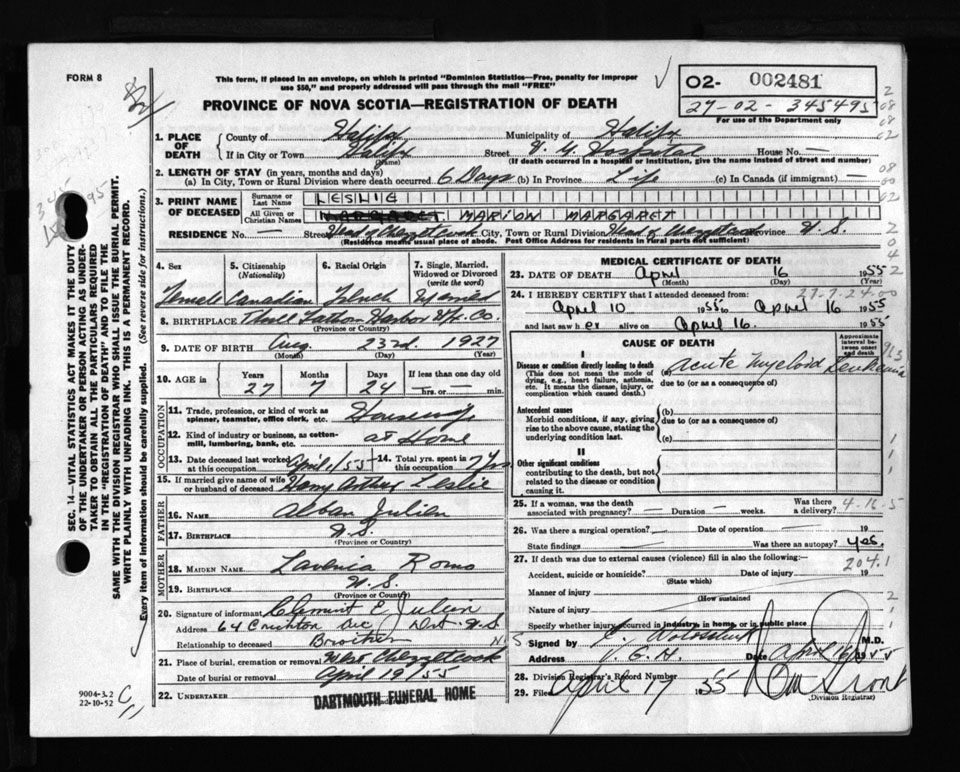 FORM 8
This form, if placed in an envelope, on which is printed "Dominion Statistics—Free, penalty for improper
use $50," and properly addressed will pass through the mail "FREE"
PROVINCE OF NOVA SCOTIA—REGISTRATION OF DEATH
02- 002481
27-02-345495
For use of the Department only
1. PLACE OF DEATH
County of Halifx Municipality of Halifx
If in City or Town Halifx Street V. G. Hospital House No. —
(Name) (If death occurred in a hospital or institution, give the name instead of street and number)
2. LENGTH OF STAY (in years, months and days)
(a) In City, Town or Rural Division where death occurred 6 Days (b) In Province Life (c) In Canada (if immigrant) —
3. PRINT NAME OF DECEASED
Surname or Last Name LESLIE
All Given or Christian Names MARGARET MARION MARGARET
RESIDENCE No. — Street Head of Chezzetcook City, Town or Rural Division Head of Chezzetcook Province N. S.
(Residence means usual place of abode. Post Office Address for residents in rural parts not sufficient)
4. Sex Female
5. Citizenship (Nationality) Canadian
6. Racial Origin French
7. Single, Married, Widowed or Divorced (write the word) Married
8. BIRTHPLACE Harbor Hfx. Co.
(Province or Country)
9. DATE OF BIRTH Aug. 23rd. 1927
(Month) (Day) (Year)
10. AGE in Years Months Days If less than one day old
27 7 24 hrs. or — min.
OCCUPATION
11. Trade, profession, or kind of work as spinner, teamster, office clerk, etc. Housewife
12. Kind of industry or business, as cotton-mill, lumbering, bank, etc. at Home
13. Date deceased last worked at this occupation April/55
14. Total yrs. spent in this occupation 7 Yrs
15. If married give name of wife or husband of deceased Harry Arthur Leslie
FATHER
16. NAME Alban Julien
17. BIRTHPLACE N. S.
(Province or Country)
MOTHER
18. MAIDEN NAME Lavenia Romo
19. BIRTHPLACE N. S.
(Province or Country)
20. Signature of informant Clement E. Julien
Address 64 Crichton Ave Dart. N. S.
Relationship to deceased Broither
21. Place of burial, cremation or removal West Chezzetcook
Date of burial or removal April 19/55
22. UNDERTAKER DARTMOUTH FUNERAL HOME
9004-3.2
22-10-52
MEDICAL CERTIFICATE OF DEATH
23. DATE OF DEATH April 16 1955
(Month) (Day) (Year)
24. I HEREBY CERTIFY that I attended deceased from:
April 10 1955 to April 16 1955
and last saw her alive on April 16. 1955
CAUSE OF DEATH
Approximate interval between onset and death
I
Disease or condition directly leading to death
(This does not mean the mode of dying, e.g., heart failure, asthenia, etc. It means the disease, injury, or complication which caused death.)
(a) acute myeloid Leukemia
due to (or as a consequence of)
Antecedent causes
Morbid conditions, if any, giving rise to the above cause, stating the underlying condition last.
(b)
due to (or as a consequence of)
(c)
II
Other significant conditions
contributing to the death, but not related to the disease or condition causing it.
25. If a woman, was the death associated with pregnancy? — Duration — weeks. Was there a delivery?
4-16-5
26. Was there a surgical operation? Date of operation 19
State findings Was there an autopsy? yes.
27. If death was due to external causes (violence) fill in also the following:—
204.1
Accident, suicide or homicide? Date of injury 19
(State which)
Manner of injury
(How sustained
Nature of injury
(Specify if injury occurred in industry, in home, or in public place
Signed by M.D.
Address V. G. H. Date April 16 1955
28. Division Registrar's Record Number
29. Filed April 17 1955
(Division Registrar)
SEC. 14—VITAL STATISTICS ACT MAKES IT THE DUTY
OF THE UNDERTAKER OR PERSON ACTING AS UNDER-
TAKER TO OBTAIN ALL THE PARTICULARS REQUIRED
IN THE "REGISTRATION OF DEATH" AND TO FILE THE
SAME WITH THE DIVISION REGISTRAR WHO SHALL ISSUE THE BURIAL PERMIT.
WRITE PLAINLY WITH UNFADING INK. THIS IS A PERMANENT RECORD.
Every item of information should be carefully supplied. (See reverse side for instructions.)